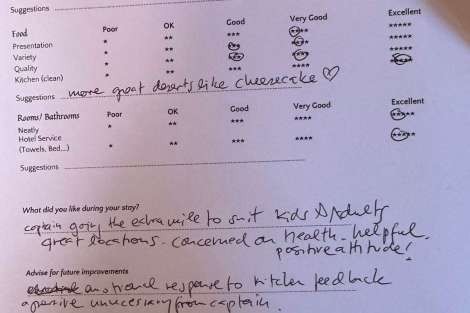 Suggestions
Food Poor OK Good Very Good Excellent
Presentation * ** *** **** *****
Variety * ** *** **** *****
Quality * ** *** **** *****
Kitchen (clean) * ** *** **** *****
Suggestions more great deserts like cheesecake ♡
Rooms/ Bathrooms Poor OK Good Very Good Excellent
Neatly * ** *** **** *****
Hotel Service
(Towels, Bed...) * ** *** **** *****
Suggestions
What did you like during your stay?
captain going the extra mile to suit kids & Adults
great locations. concerned on health. helpful.
positive attitude!
Advise for future improvements
emotional response to kitchen feedback
unnecessary from captain.